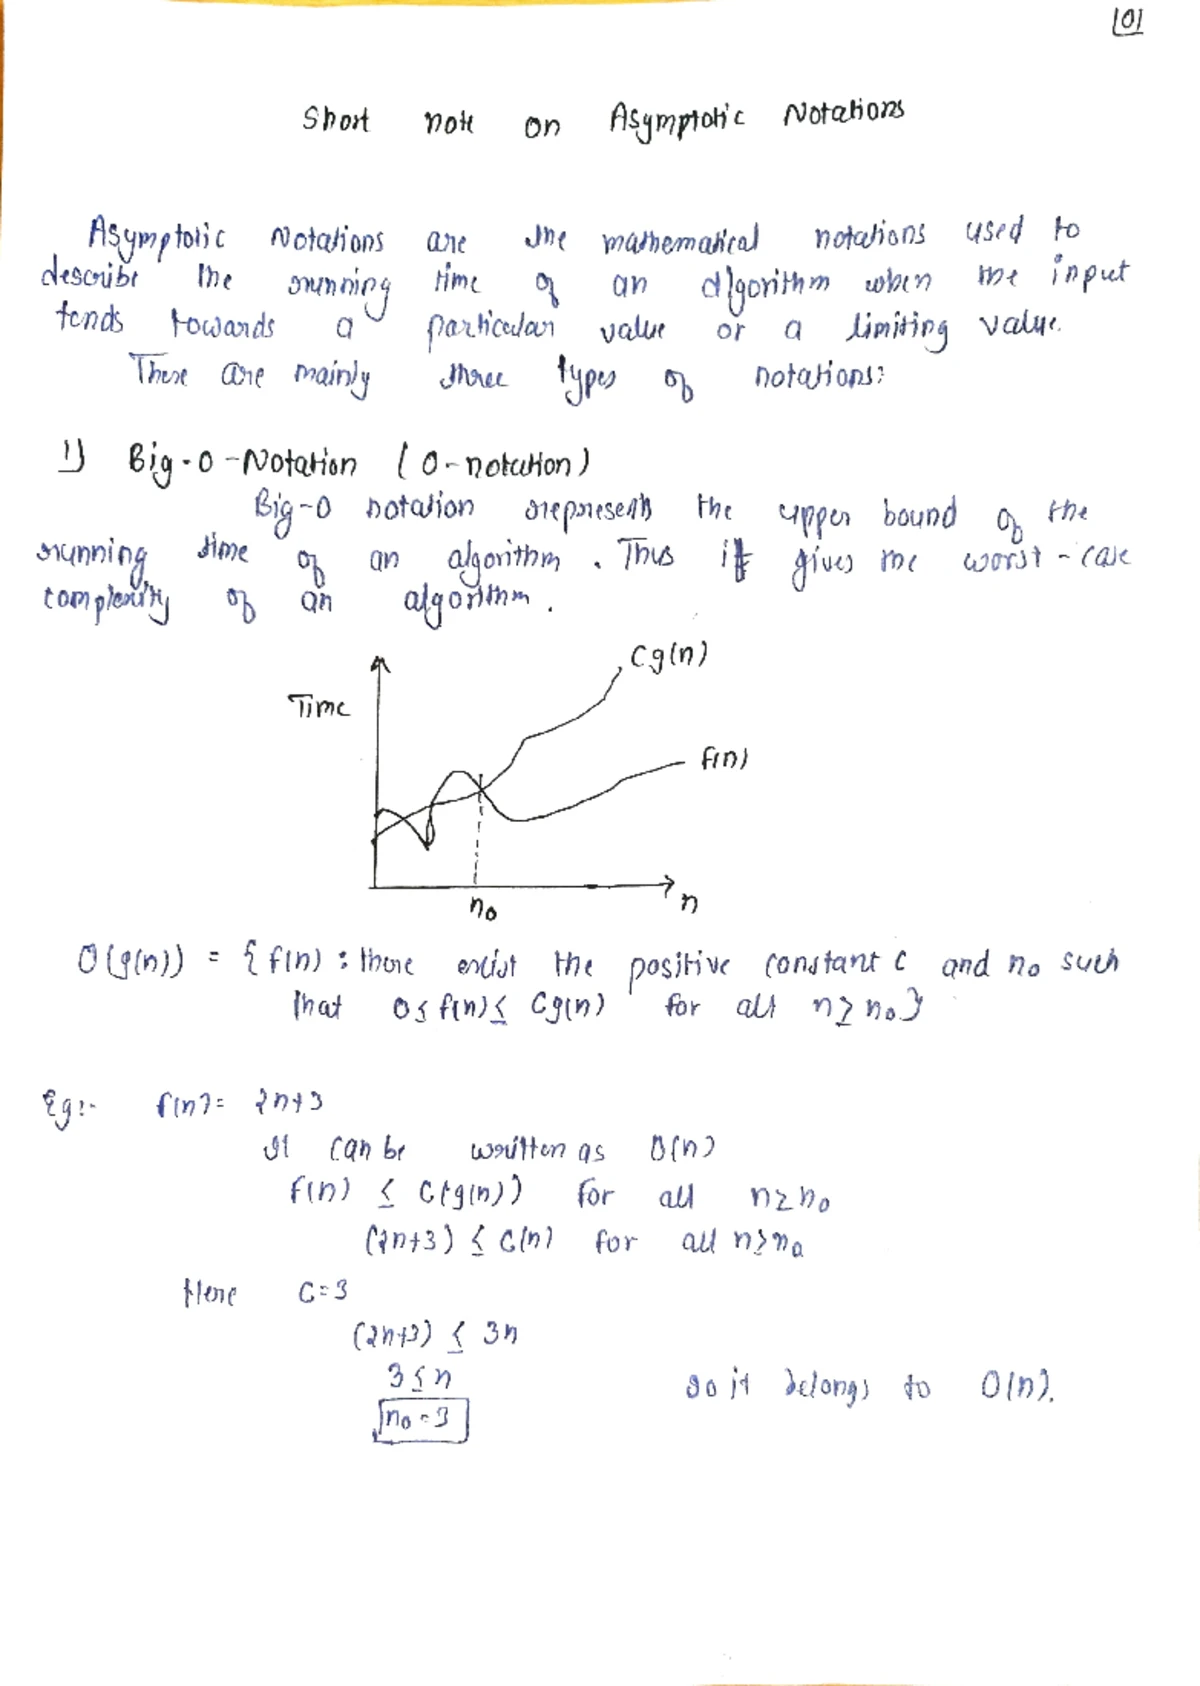 101
Short note on Asymptotic Notations
Asymptotic Notations are the mathematical notations used to
describe the running time of an algorithm when the input
tends towards a particular value or a limiting value.
There are mainly three types of notations:
1) Big-O-Notation (O-notation)
Big-O notation represents the upper bound of the
running time of an algorithm. Thus it gives the worst-case
complexity of an algorithm.
Cg(n)
Time
f(n)
n₀ n
O(g(n)) = { f(n) : there exist the positive constant c and n₀ such
that 0 ≤ f(n) ≤ Cg(n) for all n ≥ n₀ }
Eg:- f(n) = 2n+3
It can be written as O(n)
f(n) ≤ C(g(n)) for all n ≥ n₀
(2n+3) ≤ C(n) for all n ≥ n₀
Here C=3
(2n+3) ≤ 3n
3 ≤ n so it belongs to O(n).
n₀ = 3